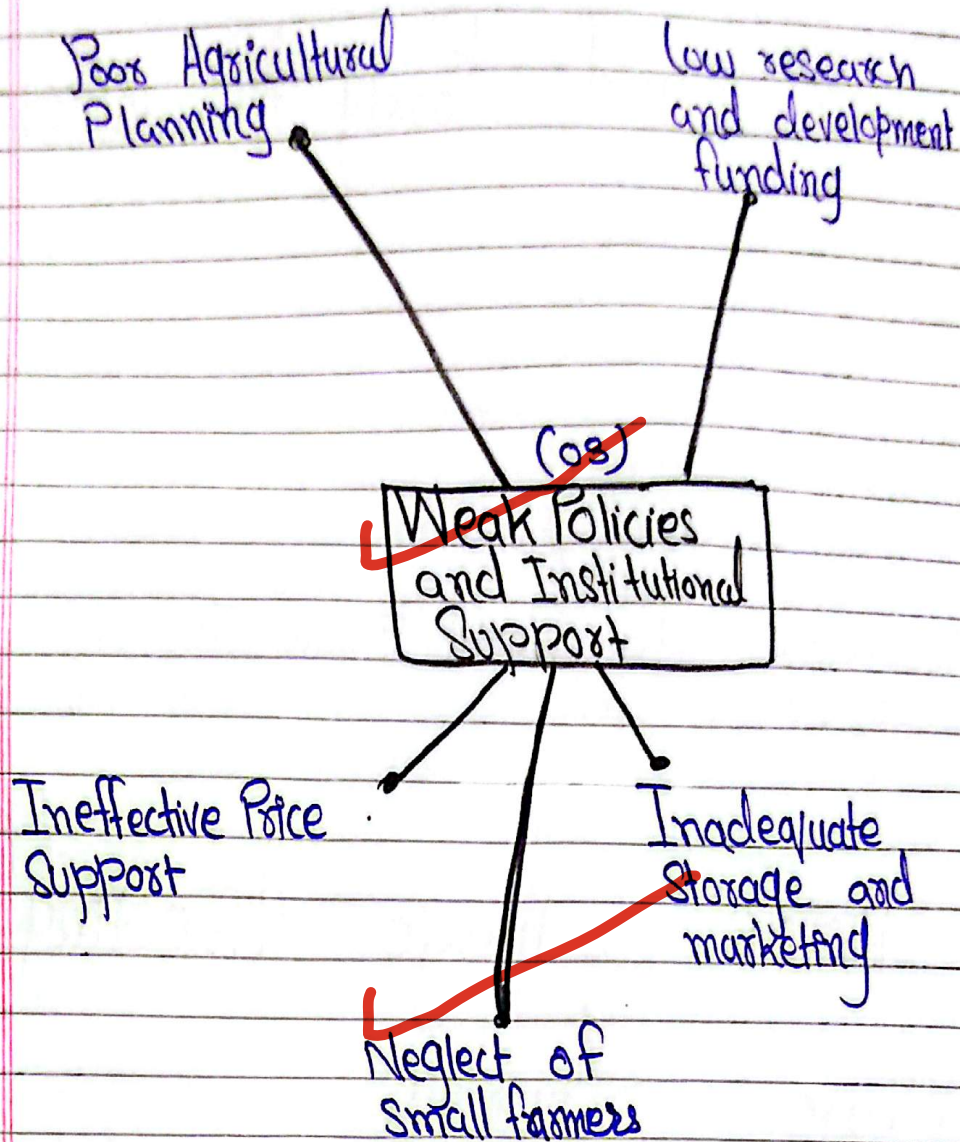 Poor Agricultural
Planning
low research
and development
funding
(08)
Weak Policies
and Institutional
Support
Ineffective Price
Support
Inadequate
Storage and
marketing
Neglect of
small farmers